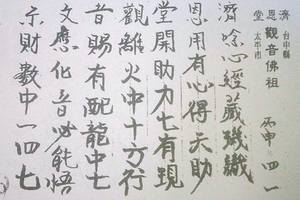 濟恩堂
台中縣
太平市
觀音佛祖 丙申 四一
濟唸心經藏
恩用有心得天助
堂開助力七有現
觀離火中十方行
音賜有配龍中七
文應化音必能悟
示財數中一四七